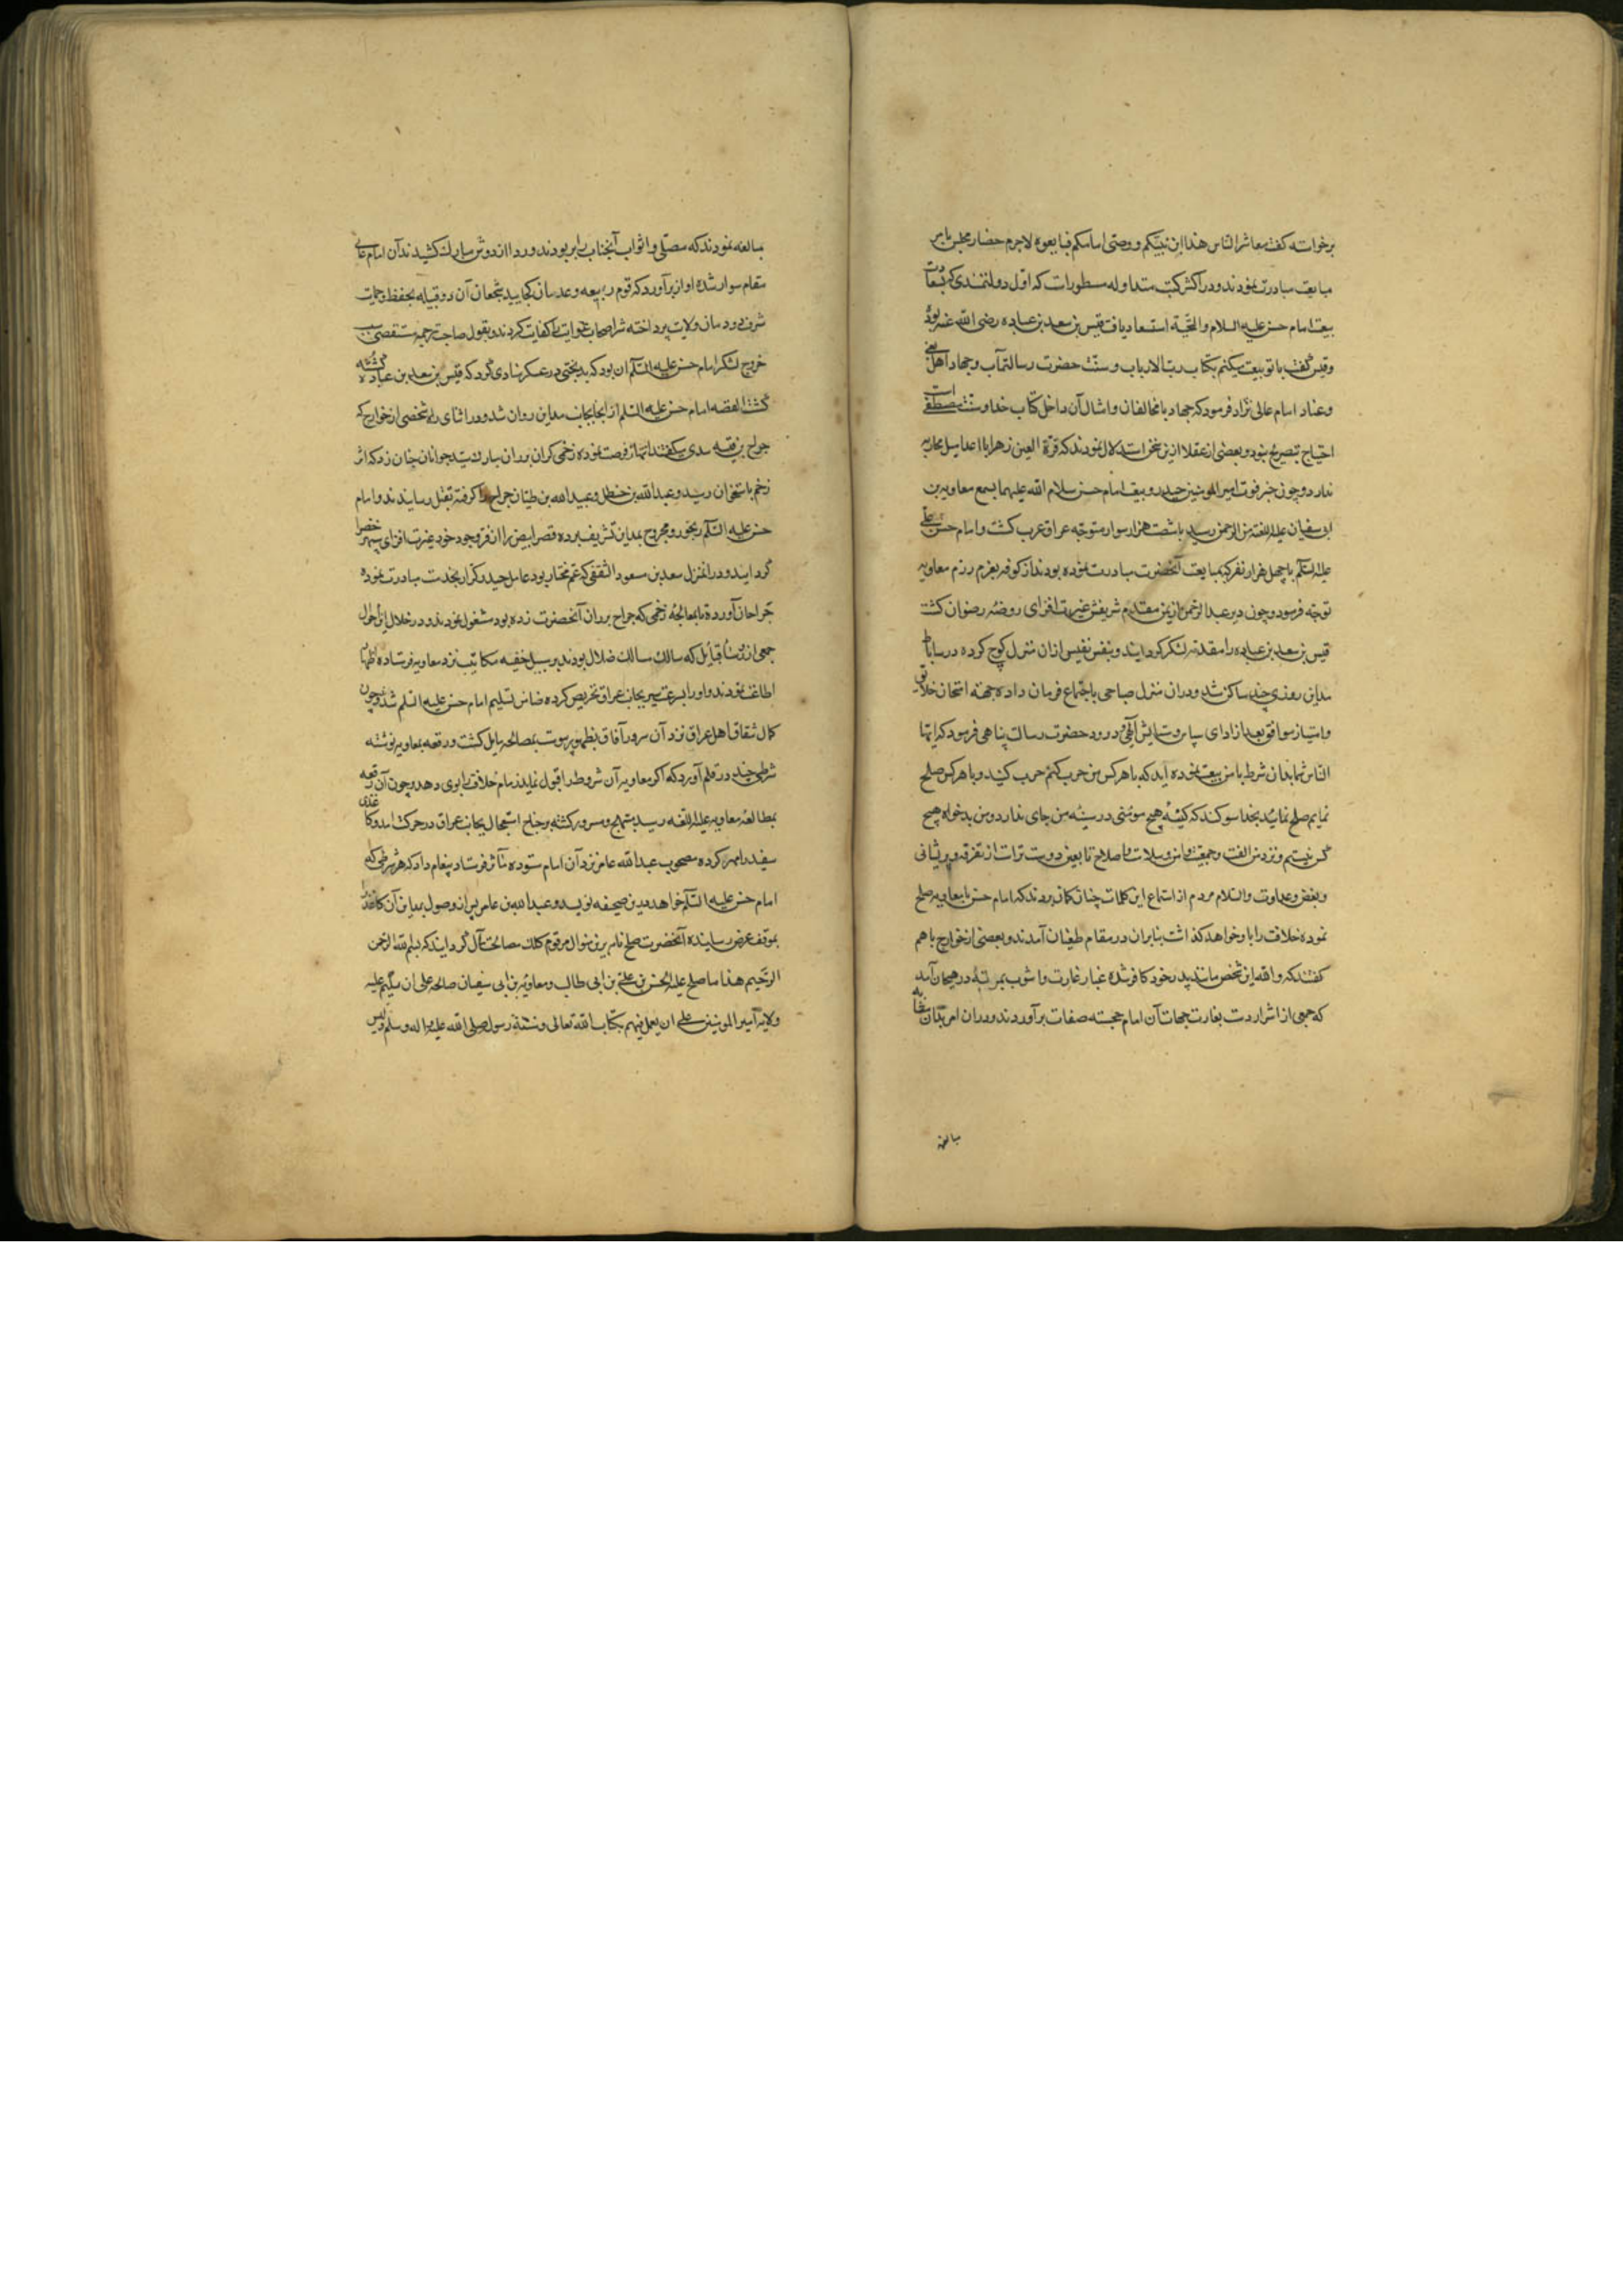 برخواسته کفت معاشر الناس هذا ابن نبیکم و وصی امامکم فبایعوه لاجرم حضار مجلس بامر
مبایعت مبادرت نمودند و در اکثر کتب متداوله مسطورات که اول دولتمندی که بسعادت
بیعت امام حسن علیه السلام والتحیة استسعاد یافت قیس بن سعد بن عباده رضی الله عنه بود
وقیس کفت با تو بیعت میکنم بکتاب رب الارباب و سنت حضرت رسالتمآب و جهاد اهل بغی
وعناد امام عالی نژاد فرمود که جهاد با مخالفان و امثال آن داخل کتاب خدا و سنت مصطفی است
احتیاج بتصریح نبود و بعضی از عقلا ازین سخن استدلال نمودند که قرة العین زهرا با اعدا میل محاربه
ندارد و چون خبر فوت امیر المومنین حیدر و بیعت امام حسن سلام الله علیهما بسمع معاویه بن
ابی سفیان علیه اللعنة من الرحمن رسید با شصت هزار سوار متوجه عراق عرب کشت و امام حسن بن علی
علیه السلم با چهل هزار نفر که بمبایعت آنحضرت مبادرت نموده بودند از کوفه بعزم رزم معاویه
توجه فرمود و چون دیر عبد الرحمن از یمن مقدم شریفش غیرت افزای روضه رضوان کشت
قیس بن سعد بن عباده را مقدمه لشکر کردانید و بنفس نفیس ازان منزل کوچ کرده در ساباط
مداین روزی چند ساکن شد ودران منزل صباحی باجتماع فرمان داده جهته امتحان خلایق
وامتیاز موافق بعد از ادای سپاس و ستایش آلهی و درود حضرت رسالت پناهی فرمود که ایها
الناس شما بدان شرط با من بیعت نموده اید که با هر کس من حرب کنم حرب کنید و با هر کس صلح
نمایم صلح نمائید بخدا سوکند که کینه هیچ مومنی در سینه من جای ندارد و من بدخواه هیچ
کس نیستم و نزد من الفت و جمعیت و امن و سلامت و اصلاح ذات بین دوست تر است از تفرقه و پریشانی
وبغض و عداوت والسلام مردم از استماع این کلمات چنان کمان بردند که امام حسن با معاویه صلح
نموده خلافت را باو خواهد کذاشت بنابران در مقام طغیان آمدند و بعضی از خوارج باهم
کفتند که والله این شخص مانند پدر خود کافر شده غبار غارت و آشوب بمرتبه در هیجان آمد
که جمعی از اشرار دست بغارت جهات آن امام خجسته صفات برآوردند و دران امر بمثابه
مبالغه
مبالغه نمودند که مصلی و اثواب آنجناب را بربودند و ردا از دوش مبارک کشیدند آن امام عالی
مقام سوار شده اواز برآورد که قوم ربیعه و همدان کجایید شجعان آن دو قبیله بحفظ و حمایت
خروج لشکر امام حسن علیه السلم آن بود که بدبختی در عسکر منادی کرد که قیس بن سعد بن عباده کشته
کشت القصه امام حسن علیه السلم از آنجا بجانب مداین روان شد و در اثنای راه شخصی از خوارج که
جراح بن قبیصه اسدی میکفتند انتهاز فرصت نموده زخمی کران بر ران مبارک سید جوانان جنان زد که اثر
زخم باستخوان رسید و عبدالله بن حنظل و عبید الله بن ظبیان جراح را کرفته بقتل رسانیدند و امام
حسن علیه السلم رنجور و مجروح بمداین تشریف برده قصر ابیض را از فر وجود خود غیرت افزای سپهر خضرا
کردانید و درانمنزل سعد بن مسعود الثقفی که عم مختار بود عامل حیدر کرار بخدمت مبادرت نموده
جراحان آورد تا بمعالجه زخمی که جراح بر ران آنحضرت زده بود مشغول نمودند و در خلال این احوال
جمعی از روساء قبایل که سالک مسالک ضلال بودند بر سبیل خفیه مکاتیب نزد معاویه فرستاده اظهار
اطاعت نمودند و او را بسرعت سیر بجانب عراق تحریص کرده ضامن تسلیم امام حسن علیه السلم شدند و چون
کمال نفاق اهل عراق نزد آن سرور آفاق بظهور پیوست بمصالحه مایل کشت و رقعه بمعاویه نوشته
شرطی چند در قلم آورد که اکر معاویه آن شروط را قبول نماید زمام خلافت را بوی دهد و چون آن رقعه
بمطالعه معاویه علیه اللعنه رسید مبتهج و مسرور کشته بر جناح استعجال بجانب عراق در حرکت آمد و کاغذی
سفید را مهر کرده مصحوب عبدالله عامر نزد آن امام ستوده مآثر فرستاد و پیغام داد که هر شرطی که
امام حسن علیه السلم خواهد بدین صحیفه نویسد و عبدالله بن عامر پس از وصول بمداین آن کاغذ را
بموقف عرض رسانیده آنحضرت صلح نامه برین منوال مرقوم کلک مصالحت مآل کردانید که بسم الله الرحمن
الرحیم هذا ما صالح علیه الحسن بن علی بن ابی طالب و معاویه بن ابی سفیان صالحه علی ان یسلم علیه
ولایه امیر المومنین علی ان یعمل فیهم بکتاب الله تعالی و سنة رسول صلی الله علیه و اله و سلم ولیس